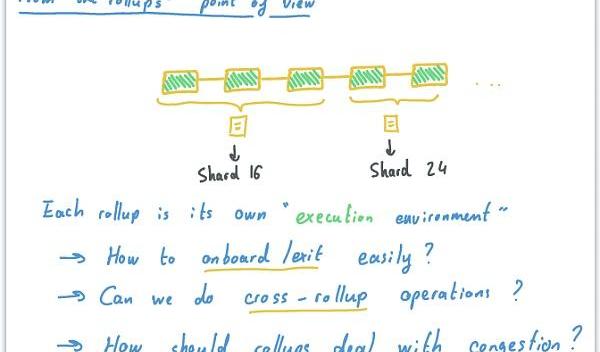 From the rollups' point of view
...
Shard 16 Shard 24
Each rollup is its own "execution environment"
→ How to onboard/exit easily?
→ Can we do cross-rollup operations?
→ How should rollups deal with congestion?